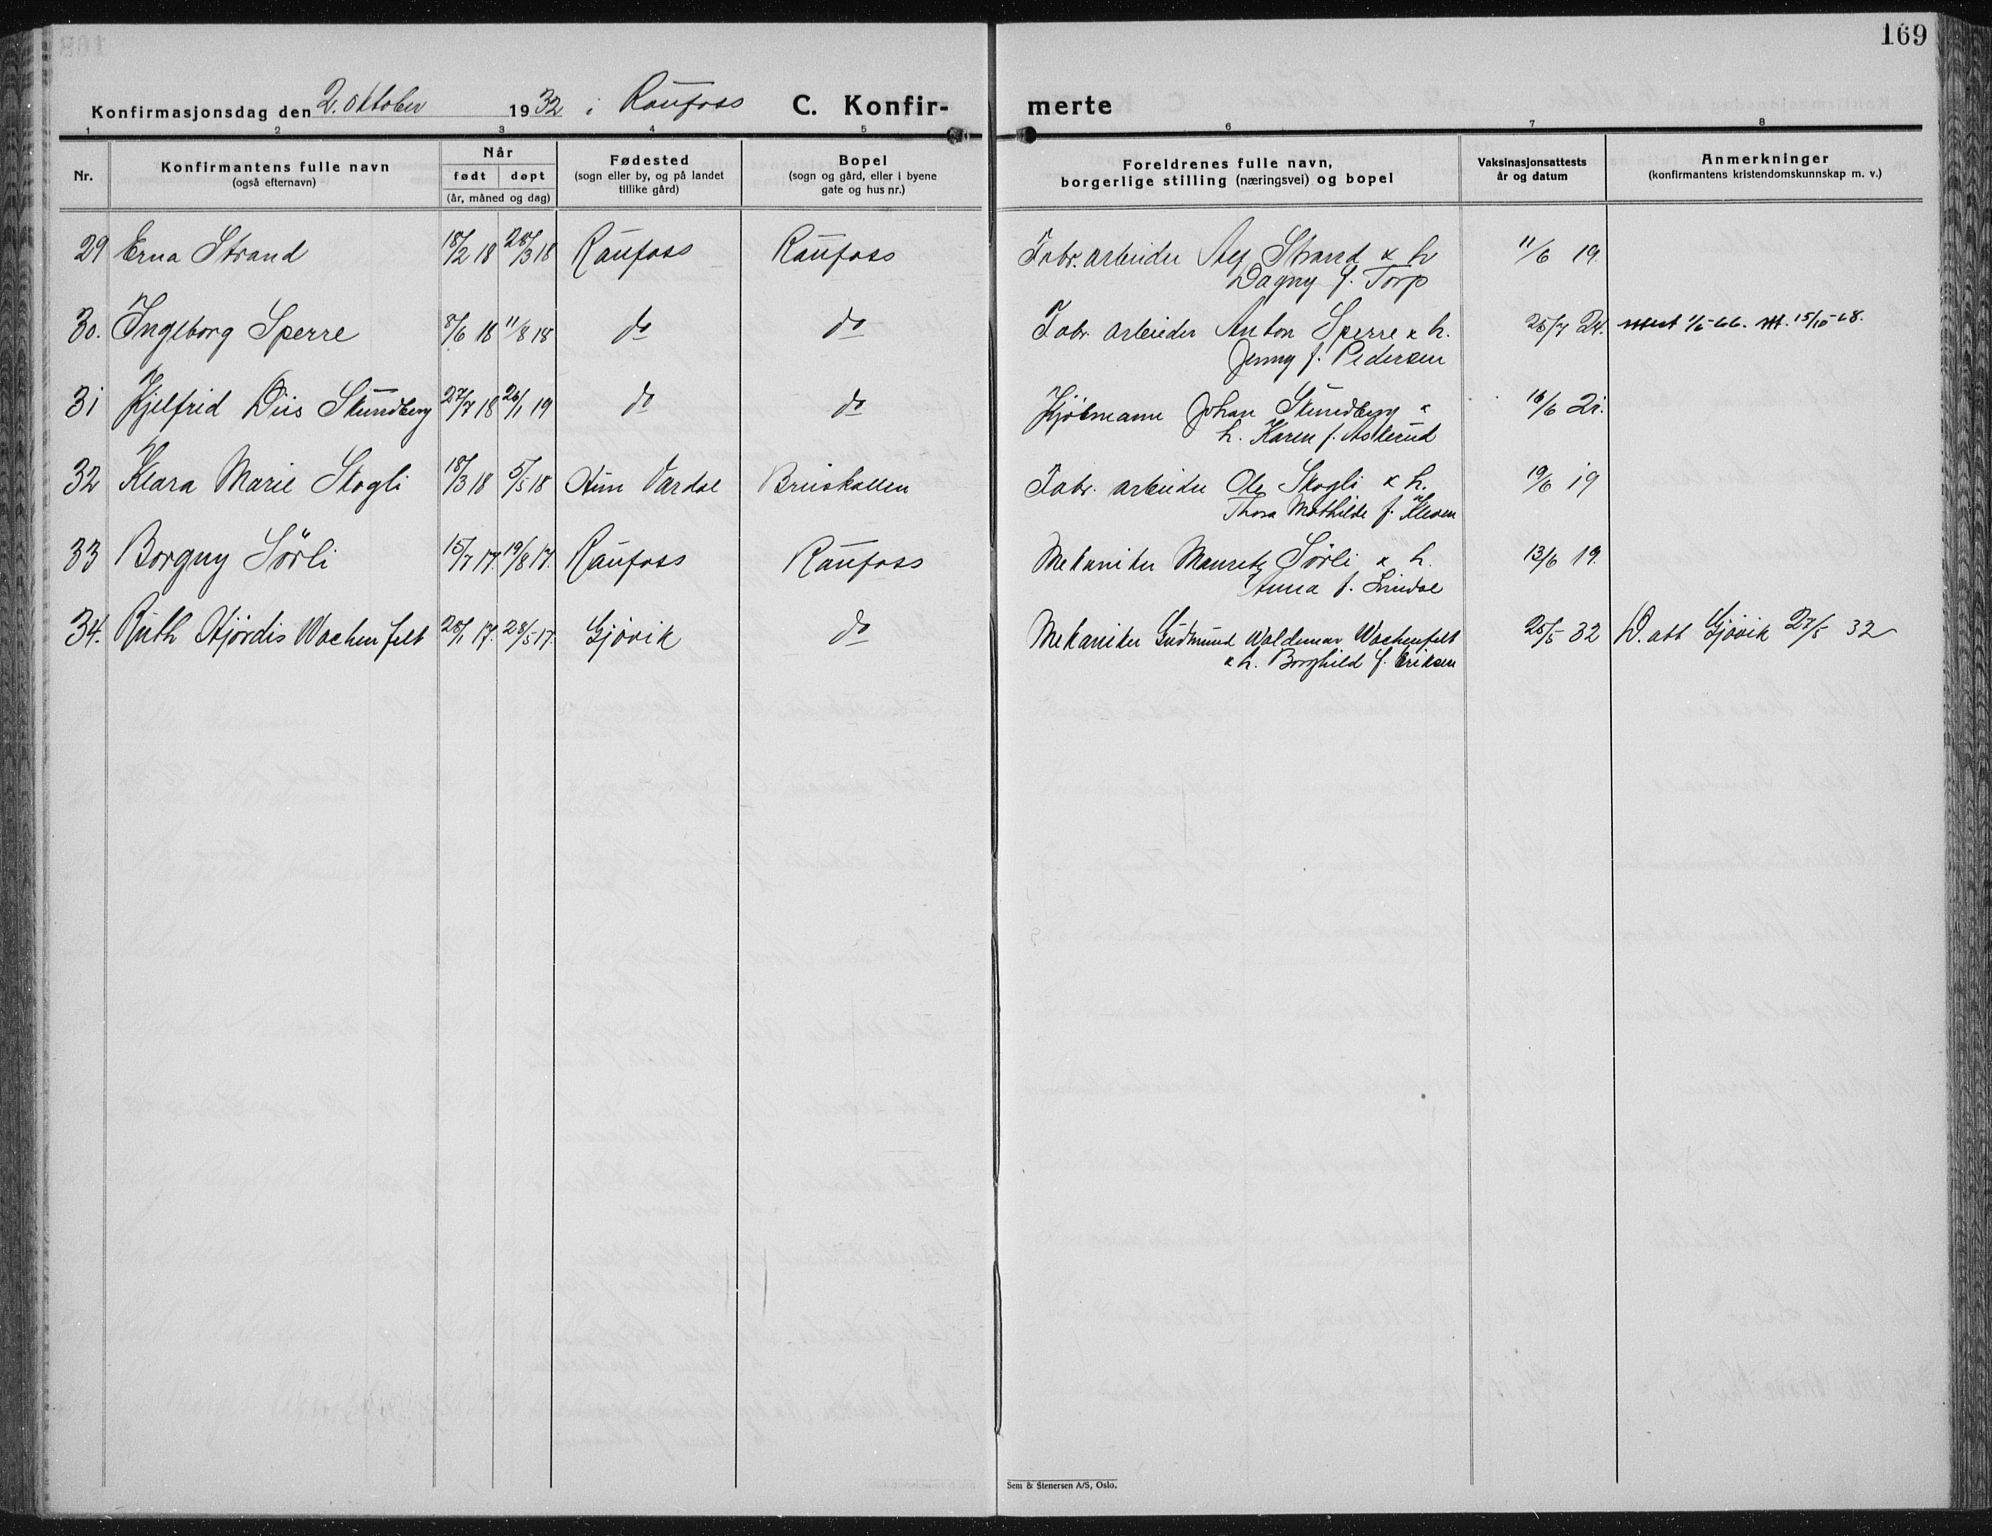 169
Konfirmasjonsdag den 2. oktober 1932 i Raufoss C. Konfir- merte
1 2 3 4 5 6 7 8
Nr. Konfirmantens fulle navn (også efternavn) Når født døpt (år, måned og dag) Fødested (sogn eller by, og på landet tillike gård) Bopel (sogn og gård, eller i byene gate og hus nr.) Foreldrenes fulle navn, borgerlige stilling (næringsvei) og bopel Vaksinasjonsattests år og datum Anmerkninger (konfirmantens kristendomskunnskap m. v.)
29 Erna Strand 18/2 18 28/3 18 Raufoss Raufoss Fabr. arbeider Strand & h 11/6 19.
Dagny f. Torp
30. Ingeborg Sperre 8/6 18 11/8 18 do do Fabr arbeider Anton Sperre & h. 25/7 24.
Jenny f. Pedersen
31 Kjelfrid Diis Stundberg 27/7 18 26/1 19 do do Kjøbmann Johan Stundberg &
h. Karen f. Asterud
32 Klara Marie Skogli 18/3 18 5/5 18 Hun Vardal Bruskallen Fabr. arbeider Ole Skogli & h. 19/6 19
Thora Mathilde f. Kleven
33 Borgny Sørli 15/7 17. 19/8 17. Raufoss Raufoss Mekaniker Mauretz Sørli & h. 13/6 19.
Anna f. Lindal
34. Ruth Hjørdis Wachenfelt 28/1 17. 28/5 17. Gjøvik do Mekaniker Gudmund Waldemar Wachenfelt 25/5 32 D. att Gjøvik 27/5 32
& h. Borghild f. Eriksen
Sem & Stenersen A/S, Oslo.